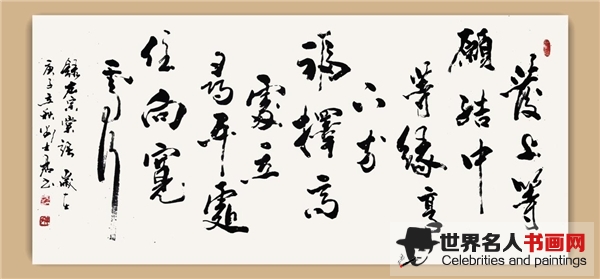 發上等
願結中
等緣享
下等
福擇高
處立
尋平處
住向寬
處行
錄左宗棠語 歲在
庚子立秋
世界名人书画网
Celebrities and paintings